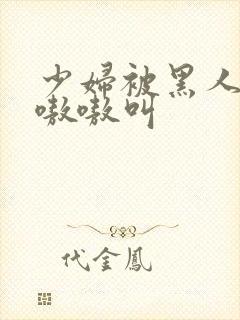 少婦被黑人
嗷嗷叫
代金鳳